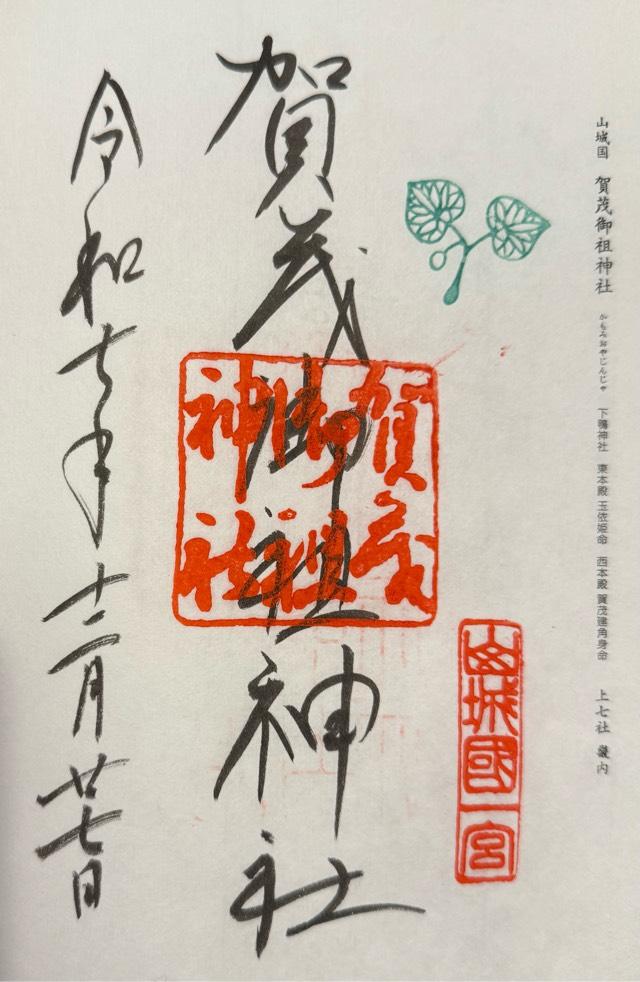 山城国 賀茂御祖神社 かもみおやじんじゃ 下鴨神社 東本殿 玉依姫命 西本殿 賀茂建角身命 上七社 畿内
山城國一宮
賀茂御祖神社
賀茂
御祖
神社
令和七年十二月廿七日